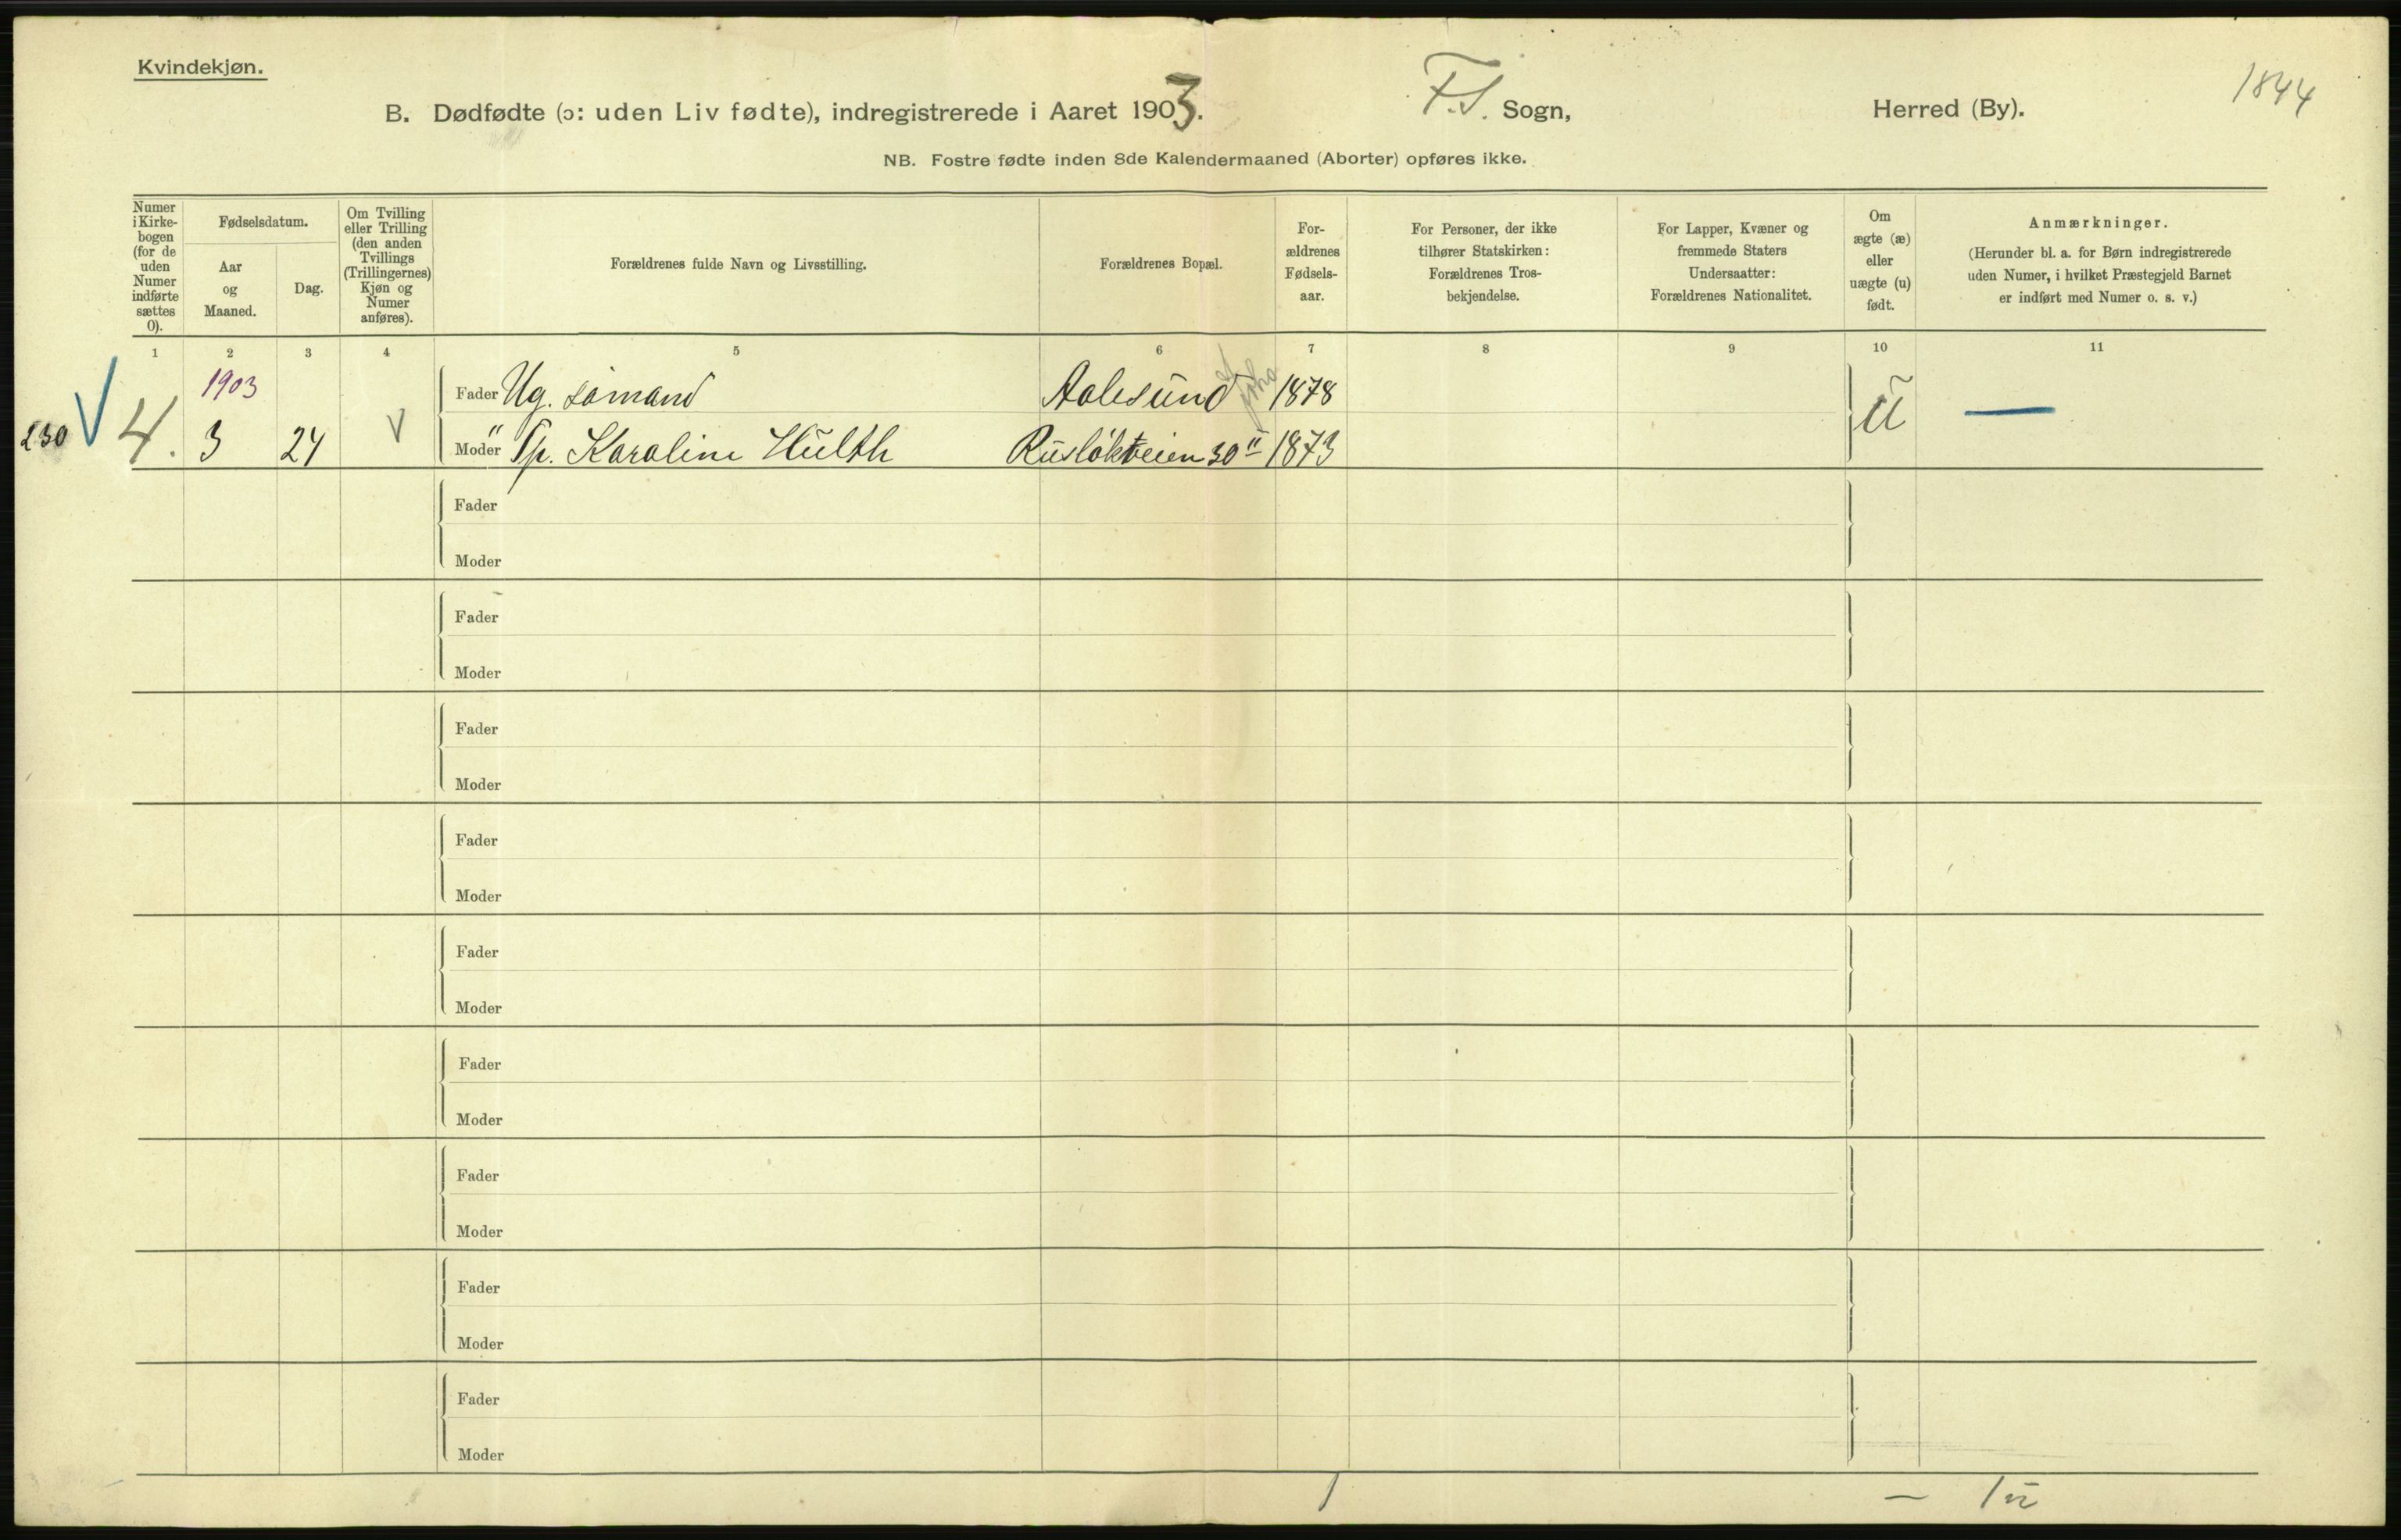 Kvindekjøn.
1844
B. Dødfødte (ɔ: uden Liv fødte), indregistrerede i Aaret 1903. F.S. Sogn, Herred (By).
NB. Fostre fødte inden 8de Kalendermaaned (Aborter) opføres ikke.
Numer i Kirke-bogen (for de uden Numer indførte sættes 0).
Fødselsdatum.
Aar og Maaned.
Dag.
Om Tvilling eller Trilling (den anden Tvillings (Trillingernes) Kjøn og Numer anføres).
Forældrenes fulde Navn og Livsstilling.
Forældrenes Bopæl.
For-ældrenes Fødsels-aar.
For Personer, der ikke tilhører Statskirken: Forældrenes Tros-bekjendelse.
For Lapper, Kvæner og fremmede Staters Undersaatter: Forældrenes Nationalitet.
Om ægte (æ) eller uægte (u) født.
Anmærkninger.
(Herunder bl. a. for Børn indregistrerede uden Numer, i hvilket Præstegjeld Barnet er indført med Numer o. s. v.)
1 2 3 4 5 6 7 8 9 10 11
1903
Fader Ug. sømand Aalesund 1878
230 V 4. 3 24 V Moder Tp. Karoline Hulth Rusløkveien 30 II 1873 U —
Fader
Moder
Fader
Moder
Fader
Moder
Fader
Moder
Fader
Moder
Fader
Moder
Fader
Moder
Fader
Moder
Fader
Moder
1 — 1 u